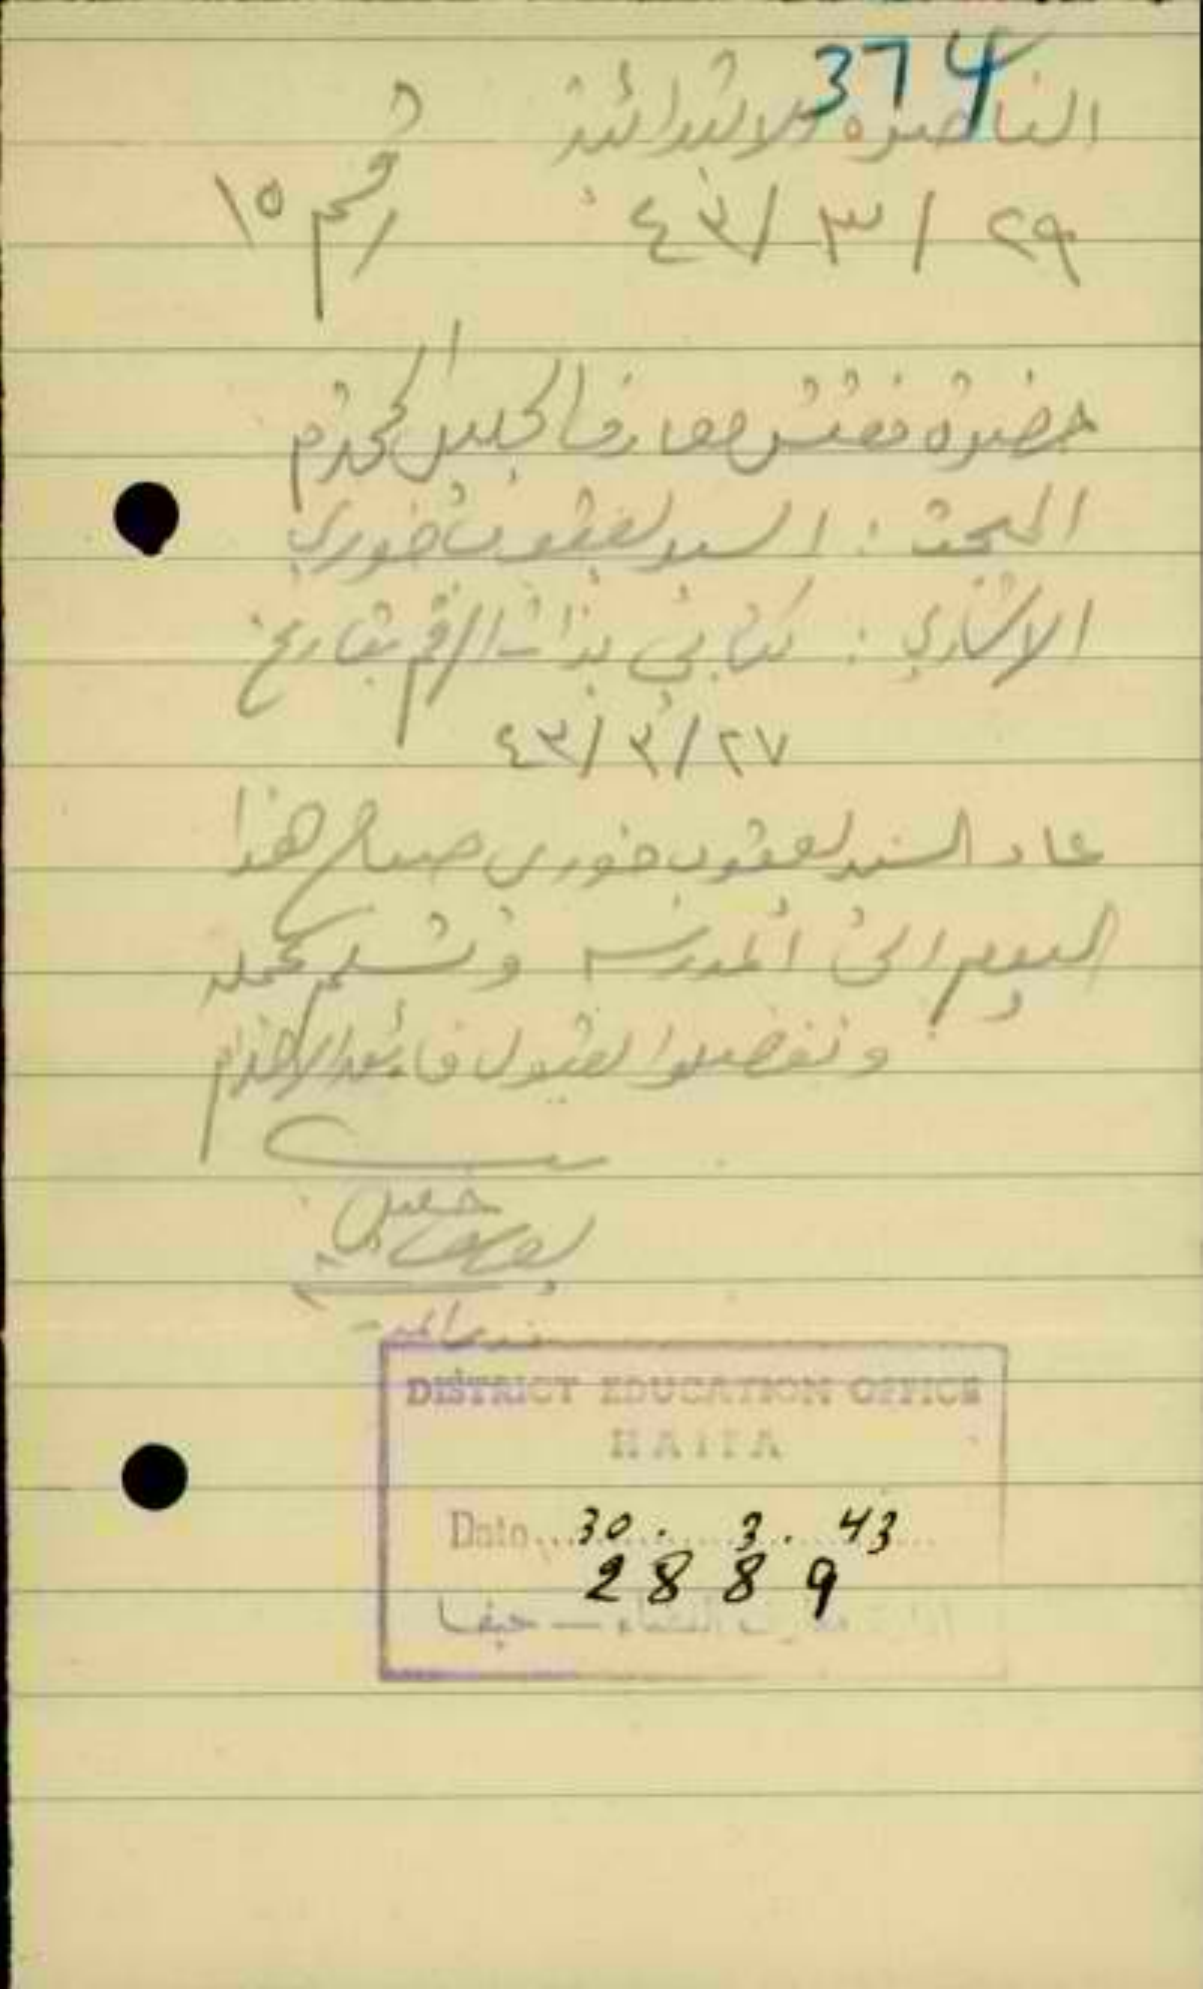 374
الناصرة الابتدائية
٢٩ / ٣ / ٤٣ رقم ١٥
حضرة مفتش معارف الجليل المحترم
المبحث : السيد يعقوب خوري
الاشارة : كتابي بذات الرقم بتاريخ
٢٧ / ٣ / ٤٣
عاد السيد يعقوب خوري صباح هذا
اليوم الى المدرسة وتسلم عمله
وتفضلوا بقبول فائق الاحترام
خليل
مدير المدرسة
DISTRICT EDUCATION OFFICE
HAIFA
Date... 30. 3. 43
2889
معارف اللواء — حيفا